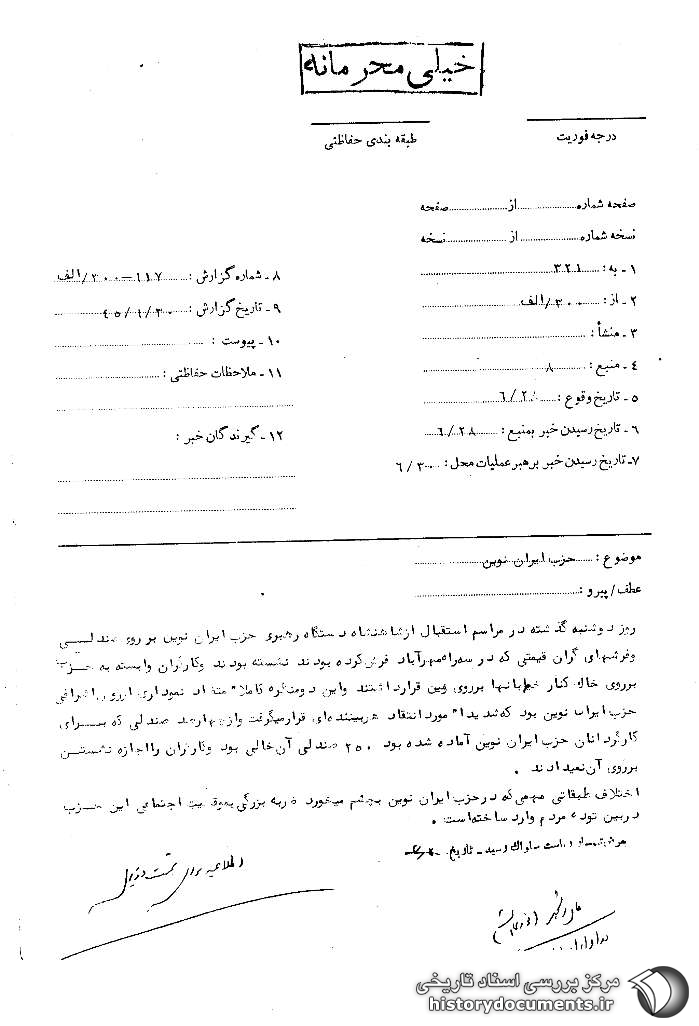 خیلی محرمانه
درجه فوریت
طبقه بندی حفاظتی
صفحه شماره از صفحه
نسخه شماره از نسخه
۱ - به : ۳۲۱
۲ - از : ۳۰۰/الف
۳ - منشأ :
۴ - منبع : ۸
۵ - تاریخ وقوع : ۶/۲۸
۶ - تاریخ رسیدن خبر بمنبع : ۶/۲۸
۷ـ تاریخ رسیدن خبر برهبر عملیات محل : ۶/۳۰
۸ - شماره گزارش : ۱۱۷-۳۰۰/الف
۹ - تاریخ گزارش :
۱۰ - پیوست :
۱۱ - ملاحظات حفاظتی :
۱۲ - گیرندگان خبر :
موضوع : حزب ایران نوین
عطف/پیرو :
روز دوشنبه گذشته در مراسم استقبال ازشاهنشاه دستگاه رهبری حزب ایران نوین بر روی صندلیـی
وفرشهای گران قیمتی که در سه‌راه‌مهرآباد فرش‌کرده بودند نشسته بودند وکارگران وابسته به حزب
برروی خاک کنار خیابانها برروی زمین قرارداشتند واین دومنظره کاملا" متضاد نموداری ازروش اشرافی
حزب ایران نوین بود که‌شدیدا" مورد انتقاد هربیننده‌ای قرارمیگرفت وازچهارصد صندلی که بـرای
کارگردانان حزب ایران نوین آماده شده بود ۲۵۰ صندلی آن‌خالی بود وکارگران رااجازه نشستـن
برروی آن‌نمیدادند .
اختلاف طبقاتی مهمی‌که درحزب ایران نوین بچشم میخورد ضربه بزرگی بموقعیت اجتماعی این حـزب
دربین توده مردم وارد ساخته‌است .
مرکز بررسی اسناد تاریخی
historydocuments.ir